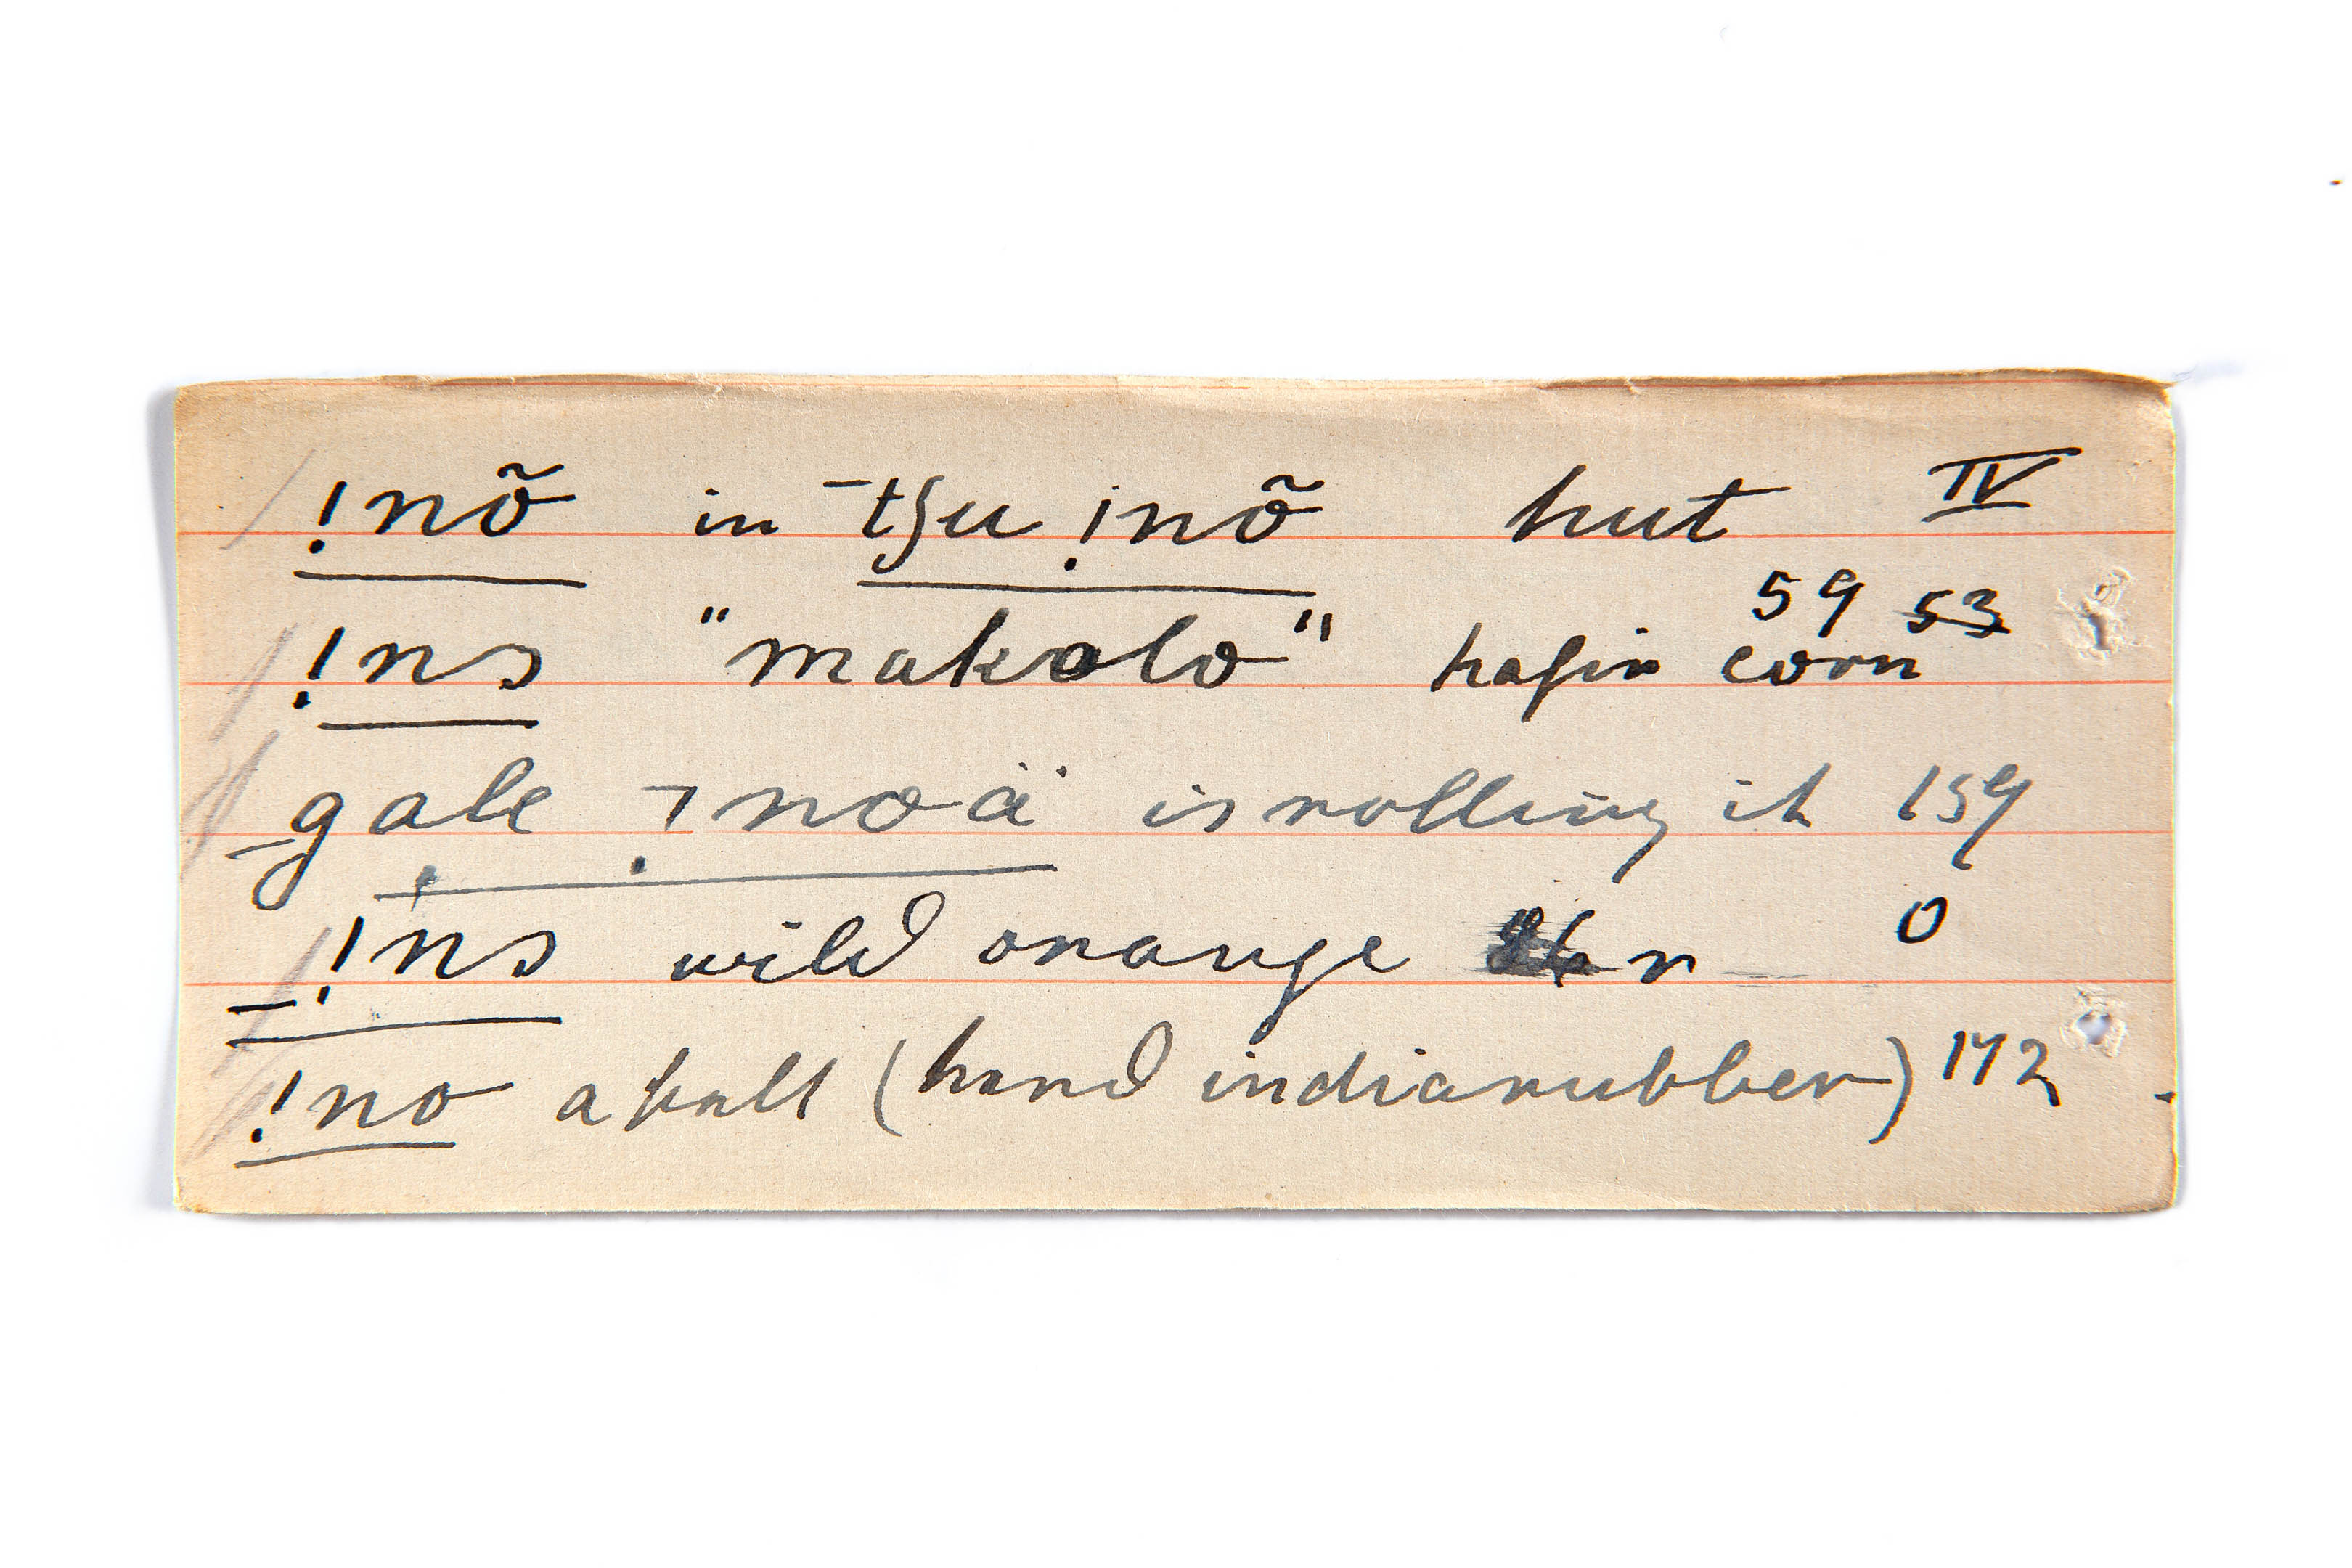 !nõ in ¯tʃu !nõ hut IV
59 53
!nɔ "makolo" kafir corn
_gale ¬noä is rolling it 159
_!nɔ wild orange r 0
!no a ball (hard indiarubber) 172